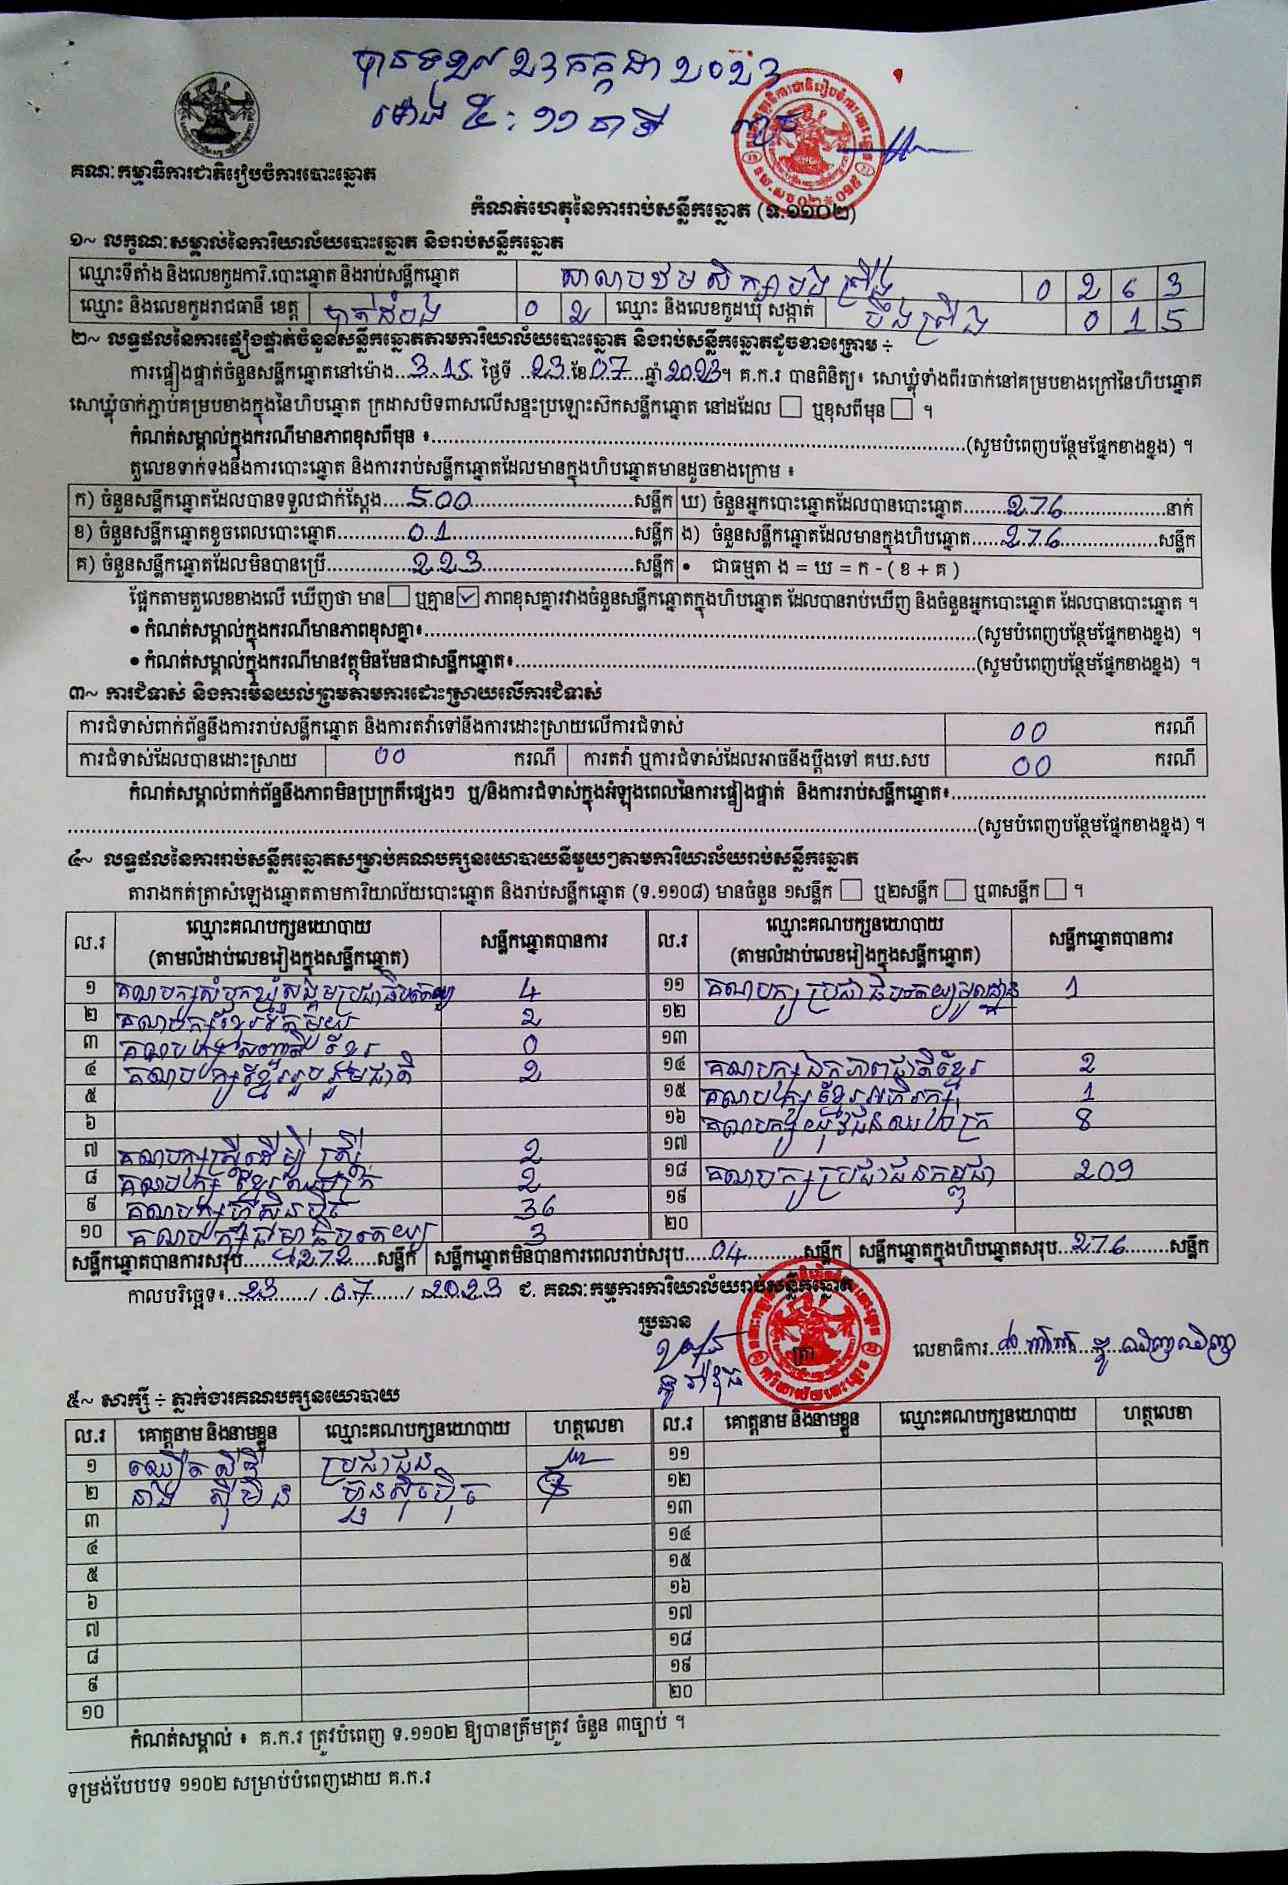 បានទទួល ២៣ កក្កដា ២០២៣
ម៉ោង ៥:១១ នាទី
គណៈកម្មាធិការជាតិរៀបចំការបោះឆ្នោត
កំណត់ហេតុនៃការរាប់សន្លឹកឆ្នោត (ទ.១១០២)
១~ លក្ខណៈសម្គាល់នៃការិយាល័យបោះឆ្នោត និងរាប់សន្លឹកឆ្នោត
ឈ្មោះទីតាំង និងលេខកូដការិ.បោះឆ្នោត និងរាប់សន្លឹកឆ្នោត សាលាបឋមសិក្សា បឹងព្រីង 0 2 6 3
ឈ្មោះ និងលេខកូដរាជធានី ខេត្ត បាត់ដំបង 0 2 ឈ្មោះ និងលេខកូដឃុំ សង្កាត់ បឹងព្រីង 0 1 5
២~ លទ្ធផលនៃការផ្ទៀងផ្ទាត់ចំនួនសន្លឹកឆ្នោតតាមការិយាល័យបោះឆ្នោត និងរាប់សន្លឹកឆ្នោតដូចខាងក្រោម ÷
ការផ្ទៀងផ្ទាត់ចំនួនសន្លឹកឆ្នោតនៅម៉ោង...3.15 ថ្ងៃទី ..23..ខែ07.....ឆ្នាំ2023។ គ.ក.រ បានពិនិត្យ៖ សោឃ្លុំទាំងពីរចាក់នៅគម្របខាងក្រៅនៃហិបឆ្នោត
សោឃ្លុំចាក់ភ្ជាប់គម្របខាងក្នុងនៃហិបឆ្នោត ក្រដាសបិទពាសលើសន្ទះប្រឡោះស៊កសន្លឹកឆ្នោត នៅដដែល ☐ ឬខុសពីមុន ☐ ។
កំណត់សម្គាល់ក្នុងករណីមានភាពខុសពីមុន ៖.....(សូមបំពេញបន្ថែមផ្នែកខាងខ្នង) ។
តួលេខទាក់ទងនឹងការបោះឆ្នោត និងការរាប់សន្លឹកឆ្នោតដែលមានក្នុងហិបឆ្នោតមានដូចខាងក្រោម ៖
ក) ចំនួនសន្លឹកឆ្នោតដែលបានទទួលជាក់ស្តែង....500....សន្លឹក ឃ) ចំនួនអ្នកបោះឆ្នោតដែលបានបោះឆ្នោត....276....នាក់
ខ) ចំនួនសន្លឹកឆ្នោតខូចពេលបោះឆ្នោត....01....សន្លឹក ង) ចំនួនសន្លឹកឆ្នោតដែលមានក្នុងហិបឆ្នោត....276....សន្លឹក
គ) ចំនួនសន្លឹកឆ្នោតដែលមិនបានប្រើ....223....សន្លឹក • ជាធម្មតា ង = ឃ = ក - ( ខ + គ )
ផ្អែកតាមតួលេខខាងលើ ឃើញថា មាន ☐ ឬគ្មាន ☑ ភាពខុសគ្នារវាងចំនួនសន្លឹកឆ្នោតក្នុងហិបឆ្នោត ដែលបានរាប់ឃើញ និងចំនួនអ្នកបោះឆ្នោត ដែលបានបោះឆ្នោត ។
• កំណត់សម្គាល់ក្នុងករណីមានភាពខុសគ្នា៖.....(សូមបំពេញបន្ថែមផ្នែកខាងខ្នង) ។
• កំណត់សម្គាល់ក្នុងករណីមានវត្ថុមិនមែនជាសន្លឹកឆ្នោត៖.....(សូមបំពេញបន្ថែមផ្នែកខាងខ្នង) ។
៣~ ការជំទាស់ និងការមិនយល់ព្រមតាមការដោះស្រាយលើការជំទាស់
ការជំទាស់ពាក់ព័ន្ធនឹងការរាប់សន្លឹកឆ្នោត និងការតវ៉ាទៅនឹងការដោះស្រាយលើការជំទាស់ 00 ករណី
ការជំទាស់ដែលបានដោះស្រាយ 00 ករណី ការតវ៉ា ឬការជំទាស់ដែលអាចនឹងប្តឹងទៅ គឃ.សប 00 ករណី
កំណត់សម្គាល់ពាក់ព័ន្ធនឹងភាពមិនប្រក្រតីផ្សេងៗ ឬ/និងការជំទាស់ក្នុងអំឡុងពេលនៃការផ្ទៀងផ្ទាត់ និងការរាប់សន្លឹកឆ្នោត៖.....
.....(សូមបំពេញបន្ថែមផ្នែកខាងខ្នង) ។
៤~ លទ្ធផលនៃការរាប់សន្លឹកឆ្នោតសម្រាប់គណបក្សនយោបាយនីមួយៗតាមការិយាល័យរាប់សន្លឹកឆ្នោត
តារាងកត់ត្រាសំឡេងឆ្នោតតាមការិយាល័យបោះឆ្នោត និងរាប់សន្លឹកឆ្នោត (ទ.១១០៨) មានចំនួន ១សន្លឹក ☐ ឬ២សន្លឹក ☐ ឬ៣សន្លឹក ☐ ។
ល.រ ឈ្មោះគណបក្សនយោបាយ (តាមលំដាប់លេខរៀងក្នុងសន្លឹកឆ្នោត) សន្លឹកឆ្នោតបានការ ល.រ ឈ្មោះគណបក្សនយោបាយ (តាមលំដាប់លេខរៀងក្នុងសន្លឹកឆ្នោត) សន្លឹកឆ្នោតបានការ
១ គណបក្សសំបុកឃ្មុំសង្គមប្រជាធិបតេយ្យ 4 ១១ គណបក្សប្រជាធិបតេយ្យមូលដ្ឋាន 1
២ គណបក្សខ្មែរវឌ្ឍមយ 2 ១២
៣ គណបក្សសញ្ជាតិខ្មែរ 0 ១៣
៤ គណបក្សខ្មែររួបរួមជាតិ 2 ១៤ គណបក្សឯកភាពជាតិខ្មែរ 2
៥ ១៥ គណបក្សខ្មែរអភិរក្ស 1
៦ ១៦ គណបក្សយុវជនឈបក្រ 8
៧ គណបក្សស្ត្រីដើម្បីស្ត្រី 2 ១៧
៨ គណបក្សខ្មែរឈប់ក្រ 2 ១៨ គណបក្សប្រជាជនកម្ពុជា 209
៩ គណបក្សហ៊្វុនស៊ិនប៉ិច 36 ១៩
១០ គណបក្សធម្មាធិបតេយ្យ 3 ២០
សន្លឹកឆ្នោតបានការសរុប....272....សន្លឹក សន្លឹកឆ្នោតមិនបានការពេលរាប់សរុប....04....សន្លឹក សន្លឹកឆ្នោតក្នុងហិបឆ្នោតសរុប..276....សន្លឹក
កាលបរិច្ឆេទ៖..23..../..07..../.2023 ជ. គណៈកម្មការការិយាល័យរាប់សន្លឹកឆ្នោត
ប្រធាន
លេខាធិការ
ត្រា
៥~ សាក្សី ÷ ភ្នាក់ងារគណបក្សនយោបាយ
ល.រ គោត្តនាម និងនាមខ្លួន ឈ្មោះគណបក្សនយោបាយ ហត្ថលេខា ល.រ គោត្តនាម និងនាមខ្លួន ឈ្មោះគណបក្សនយោបាយ ហត្ថលេខា
១ ប្រជាជន ១១
២ ហ៊្វុនស៊ិនប៉ិច ១២
៣ ១៣
៤ ១៤
៥ ១៥
៦ ១៦
៧ ១៧
៨ ១៨
៩ ១៩
១០ ២០
កំណត់សម្គាល់ ៖ គ.ក.រ ត្រូវបំពេញ ទ.១១០២ ឱ្យបានត្រឹមត្រូវ ចំនួន ៣ច្បាប់ ។
ទម្រង់បែបបទ ១១០២ សម្រាប់បំពេញដោយ គ.ក.រ